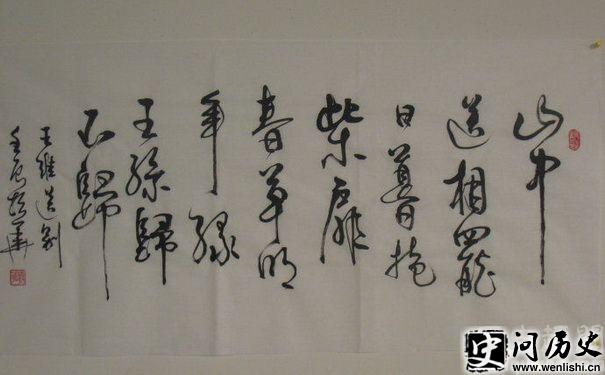 山中
送相罷
日暮掩
柴扉
春草明
年緑
王孫歸
不歸
王維送别
壬辰 華
史 问历史
www.wenlishi.cn